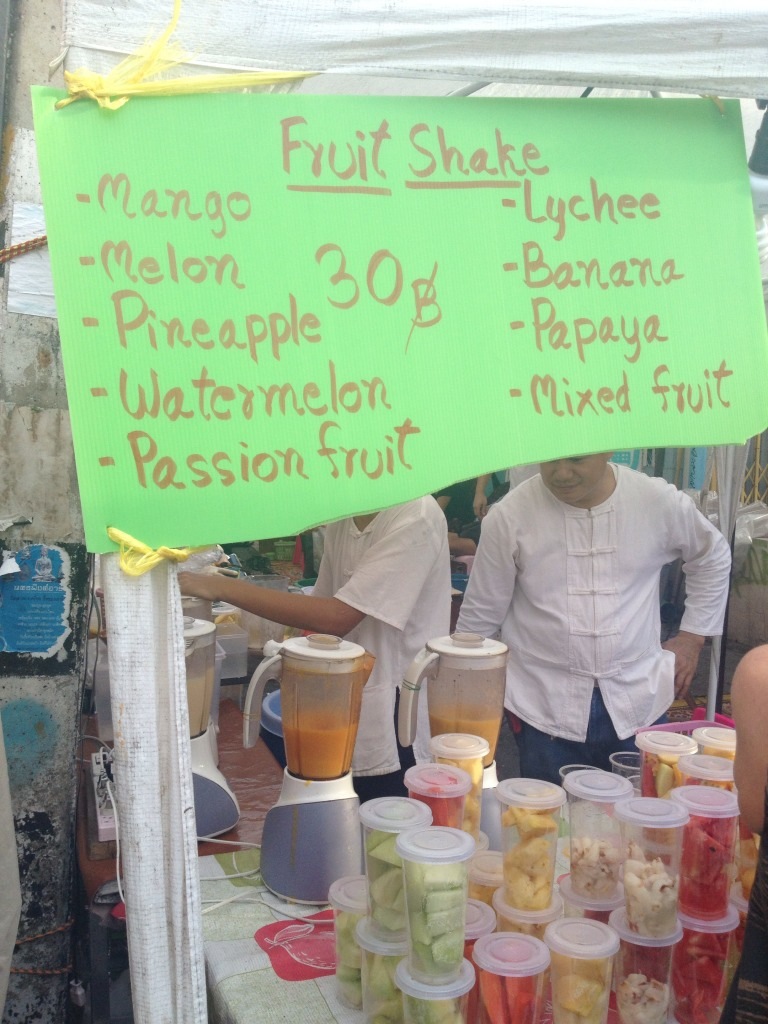 Fruit Shake
- Mango
- Melon
- Pineapple
- Watermelon
- Passion fruit
30฿
- Lychee
- Banana
- Papaya
- Mixed fruit